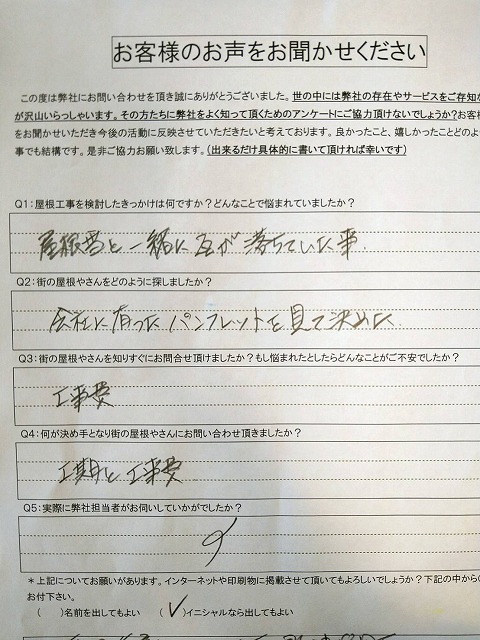 お客様のお声をお聞かせください
この度は弊社にお問い合わせを頂き誠にありがとうございました。世の中には弊社の存在やサービスをご存知な
が沢山いらっしゃいます。その方たちに弊社をよく知って頂くためのアンケートにご協力頂けないでしょうか?お客様
をお聞かせいただき今後の活動に反映させていただきたいと考えております。良かったこと、嬉しかったことどのよ
事でも結構です。是非ご協力お願い致します。(出来るだけ具体的に書いて頂ければ幸いです)
Q1:屋根工事を検討したきっかけは何ですか?どんなことで悩まれていましたか?
屋根雪と一緒に瓦が落ちていた事.
Q2:街の屋根やさんをどのように探しましたか?
会社に有ったパンフレットを見て決めた
Q3:街の屋根やさんを知りすぐにお問合せ頂けましたか?もし悩まれたとしたらどんなことがご不安でしたか?
工事費
Q4:何が決め手となり街の屋根やさんにお問い合わせ頂きましたか?
工期と工事費
Q5:実際に弊社担当者がお伺いしていかがでしたか?
*上記についてお願いがあります。インターネットや印刷物に掲載させて頂いてもよろしいでしょうか?下記の中から○
お付下さい。
( )名前を出してもよい (✓)イニシャルなら出してもよい